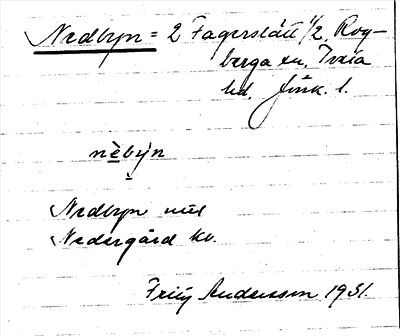 Nedbyn = 2 Fagerslätt 1/2, Rog-
berga sn, Tveta
hd, Jönk. l.
nèbỳn
Nedbyn
Nedergård kv.
Fritz Andersson 1931.